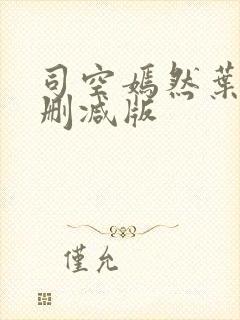 司空嫣然葉
删减版
僅允